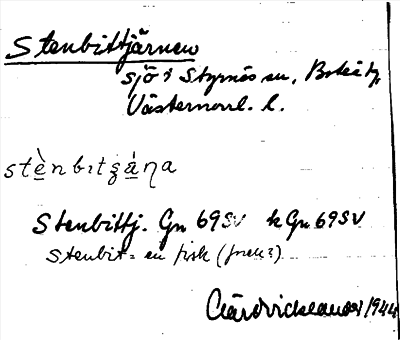 Stenbittjärnen
sjö i Styrnäs sn, Boteå tg,
Västernorrl. l.
stènbıtʂánа
Stenbittj. Gn 69SV kGn 69SV
Stenbit = en fisk
1944